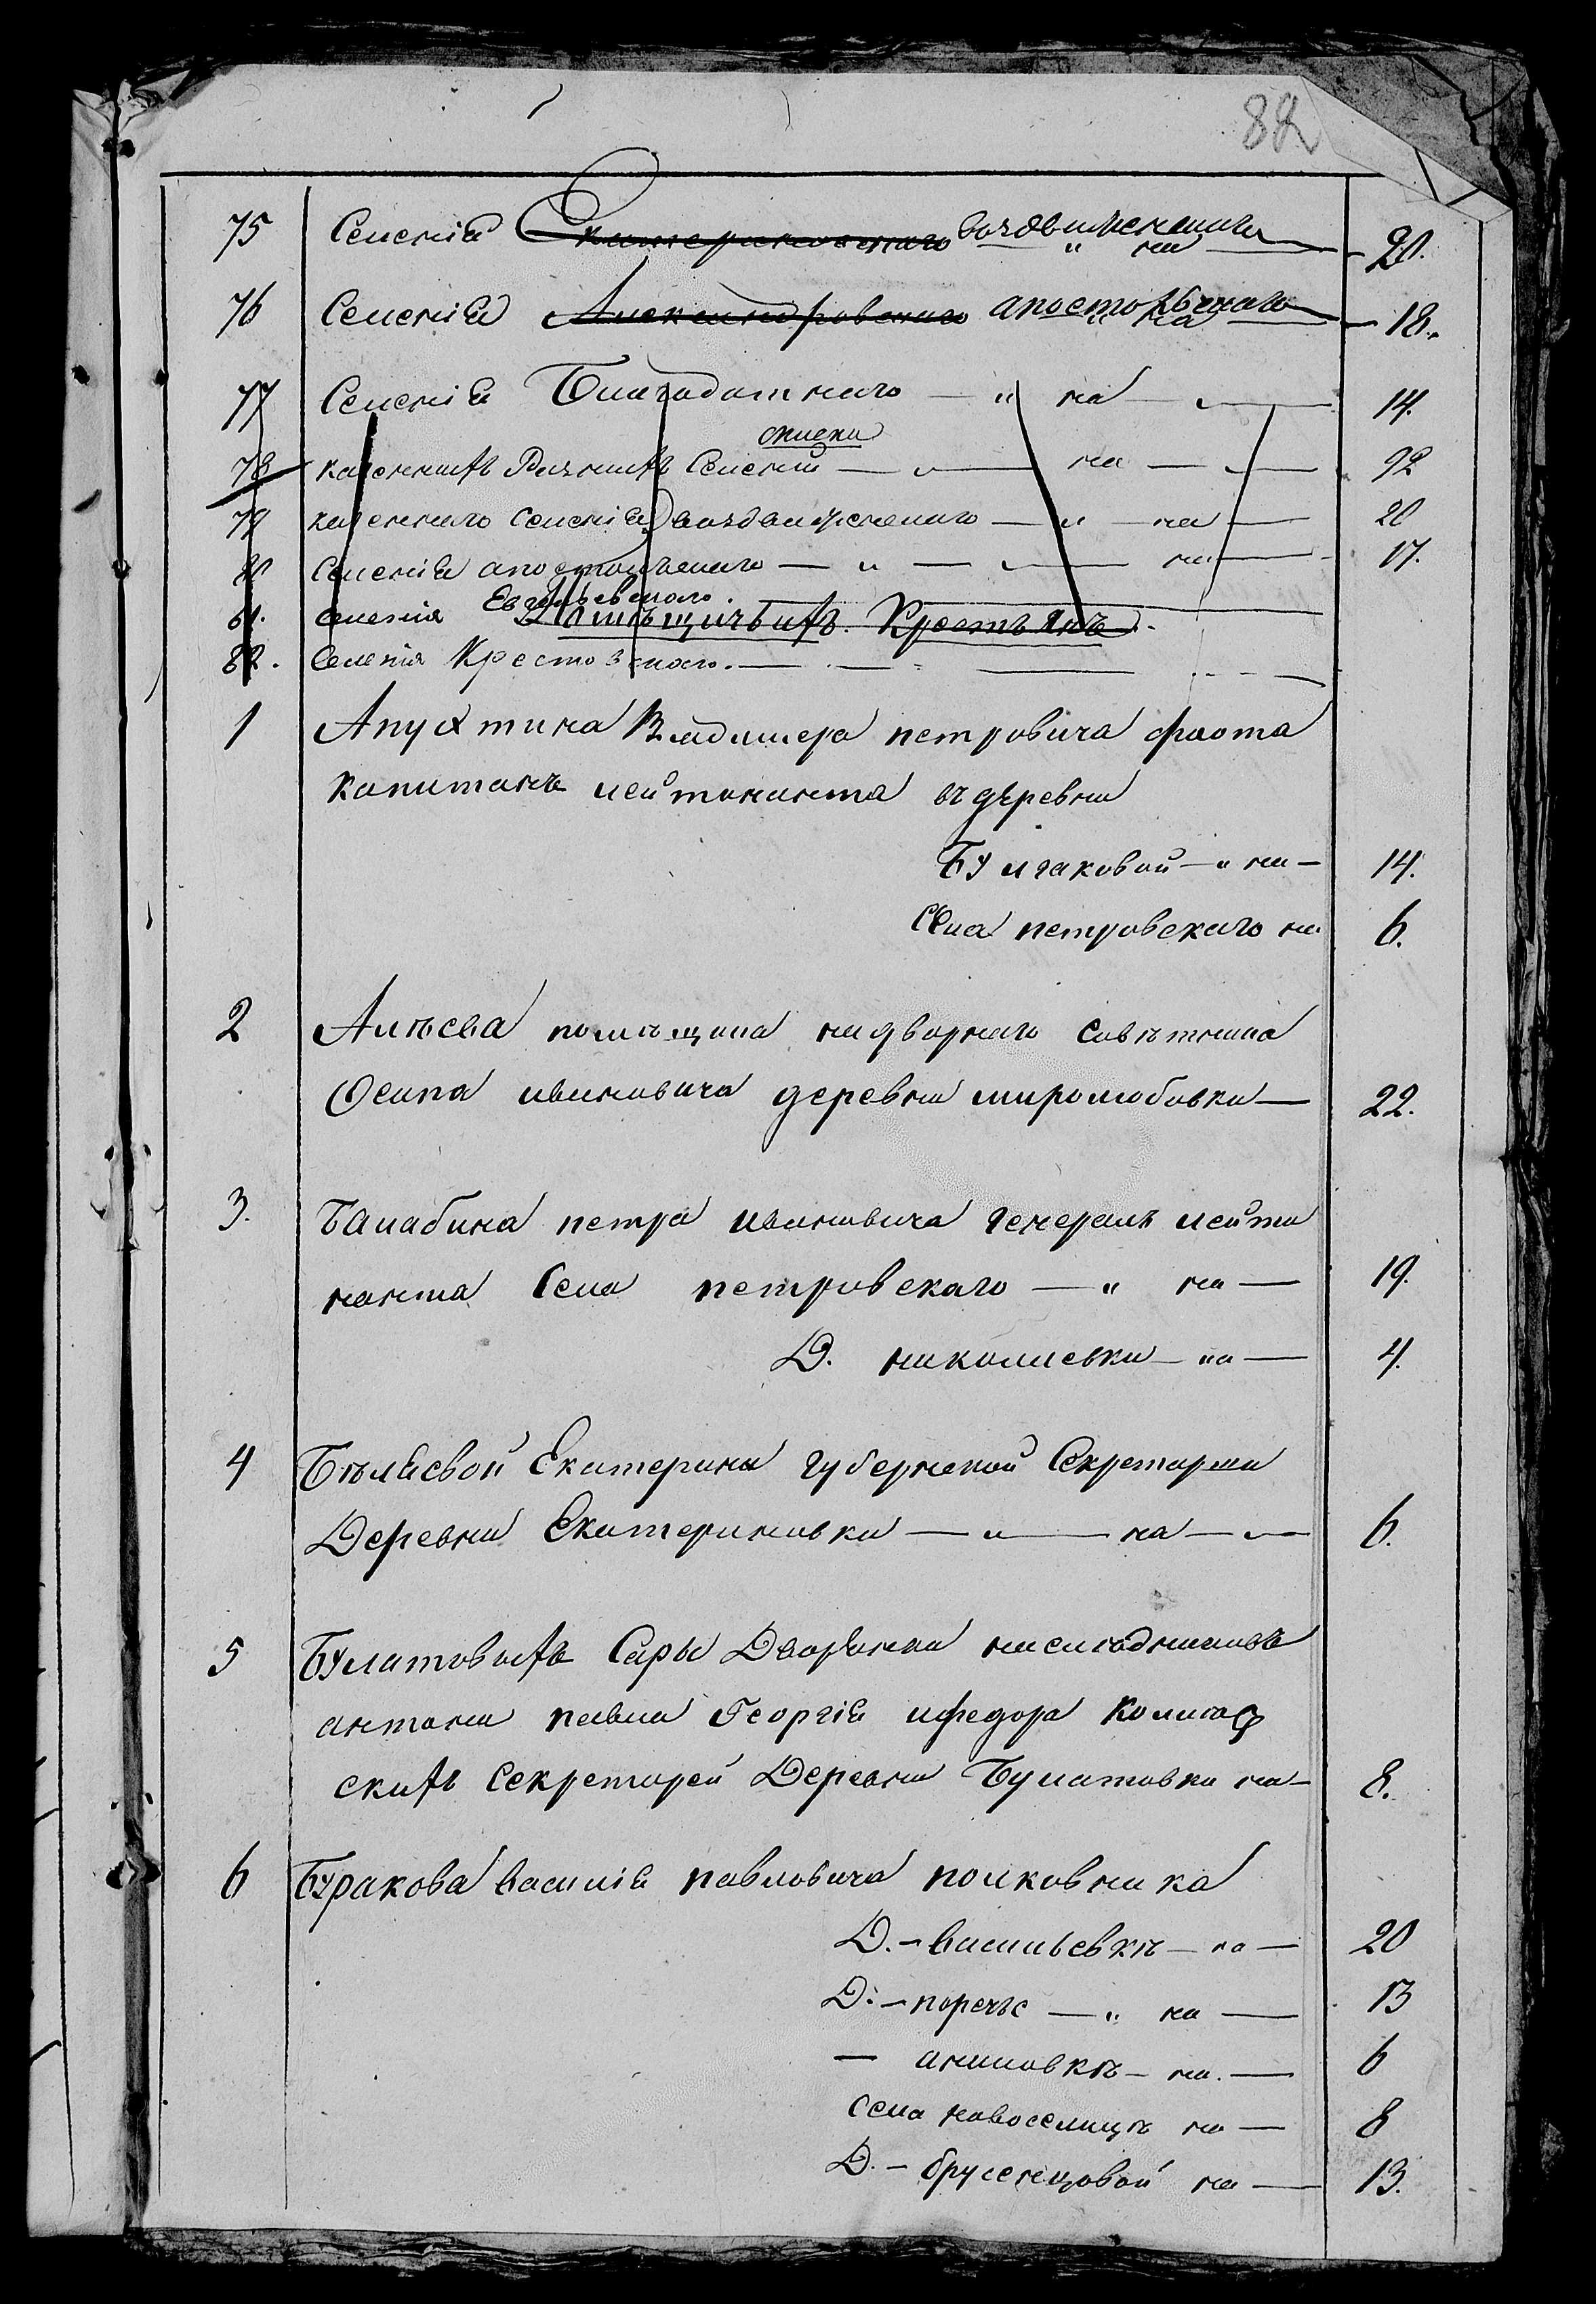 82
75 Селенія Екатериновскаго Воздвиженскаго " на — 20.
76 Селенія Александровскаго апостольскаго " на — 18.
77 Селенія Благодатнаго — " на — 14.
описи
78 казенныхъ Разныхъ Селеній — " — на — 92
79 казеннаго Селенія воздвиженскаго — " на — 20
80 Селенія апостольскаго — " — на — 17.
81. Селенія Евгеньевскаго.
Помѣщичьихъ Крестьянъ.
82. Селенія Крестовскаго. —
1 Апухтина Владимера петровича флота
капитанъ лейтенанта въ деревни
Булгаковой — " на — 14.
Села петровскаго на 6.
2 Алѣева помѣщика надворнаго совѣтника
Осипа ивановича деревни миролюбовки — 22.
3. Балабина петра ивановича генералъ лейти
нанта Села петровскаго — " на — 19.
Д. николаевки — на — 4.
4 Бѣляевой Екатерины губернской Секретарши
Деревни Екатериновки — " — на — 6.
5 Булатовыхъ Сары Дворянки наслѣдниковъ
антона павла Георгія и федора Коллеж
скихъ Секретарей Деревни Булатовки на — 8.
6 Буракова василія павловича полковника
Д. — васильевкѣ — на — 20
Д. — поречье — " на — 13
— аниловкѣ — на. — 6
Села новоселицъ на — 8
Д. — брусенцовой на — 13.